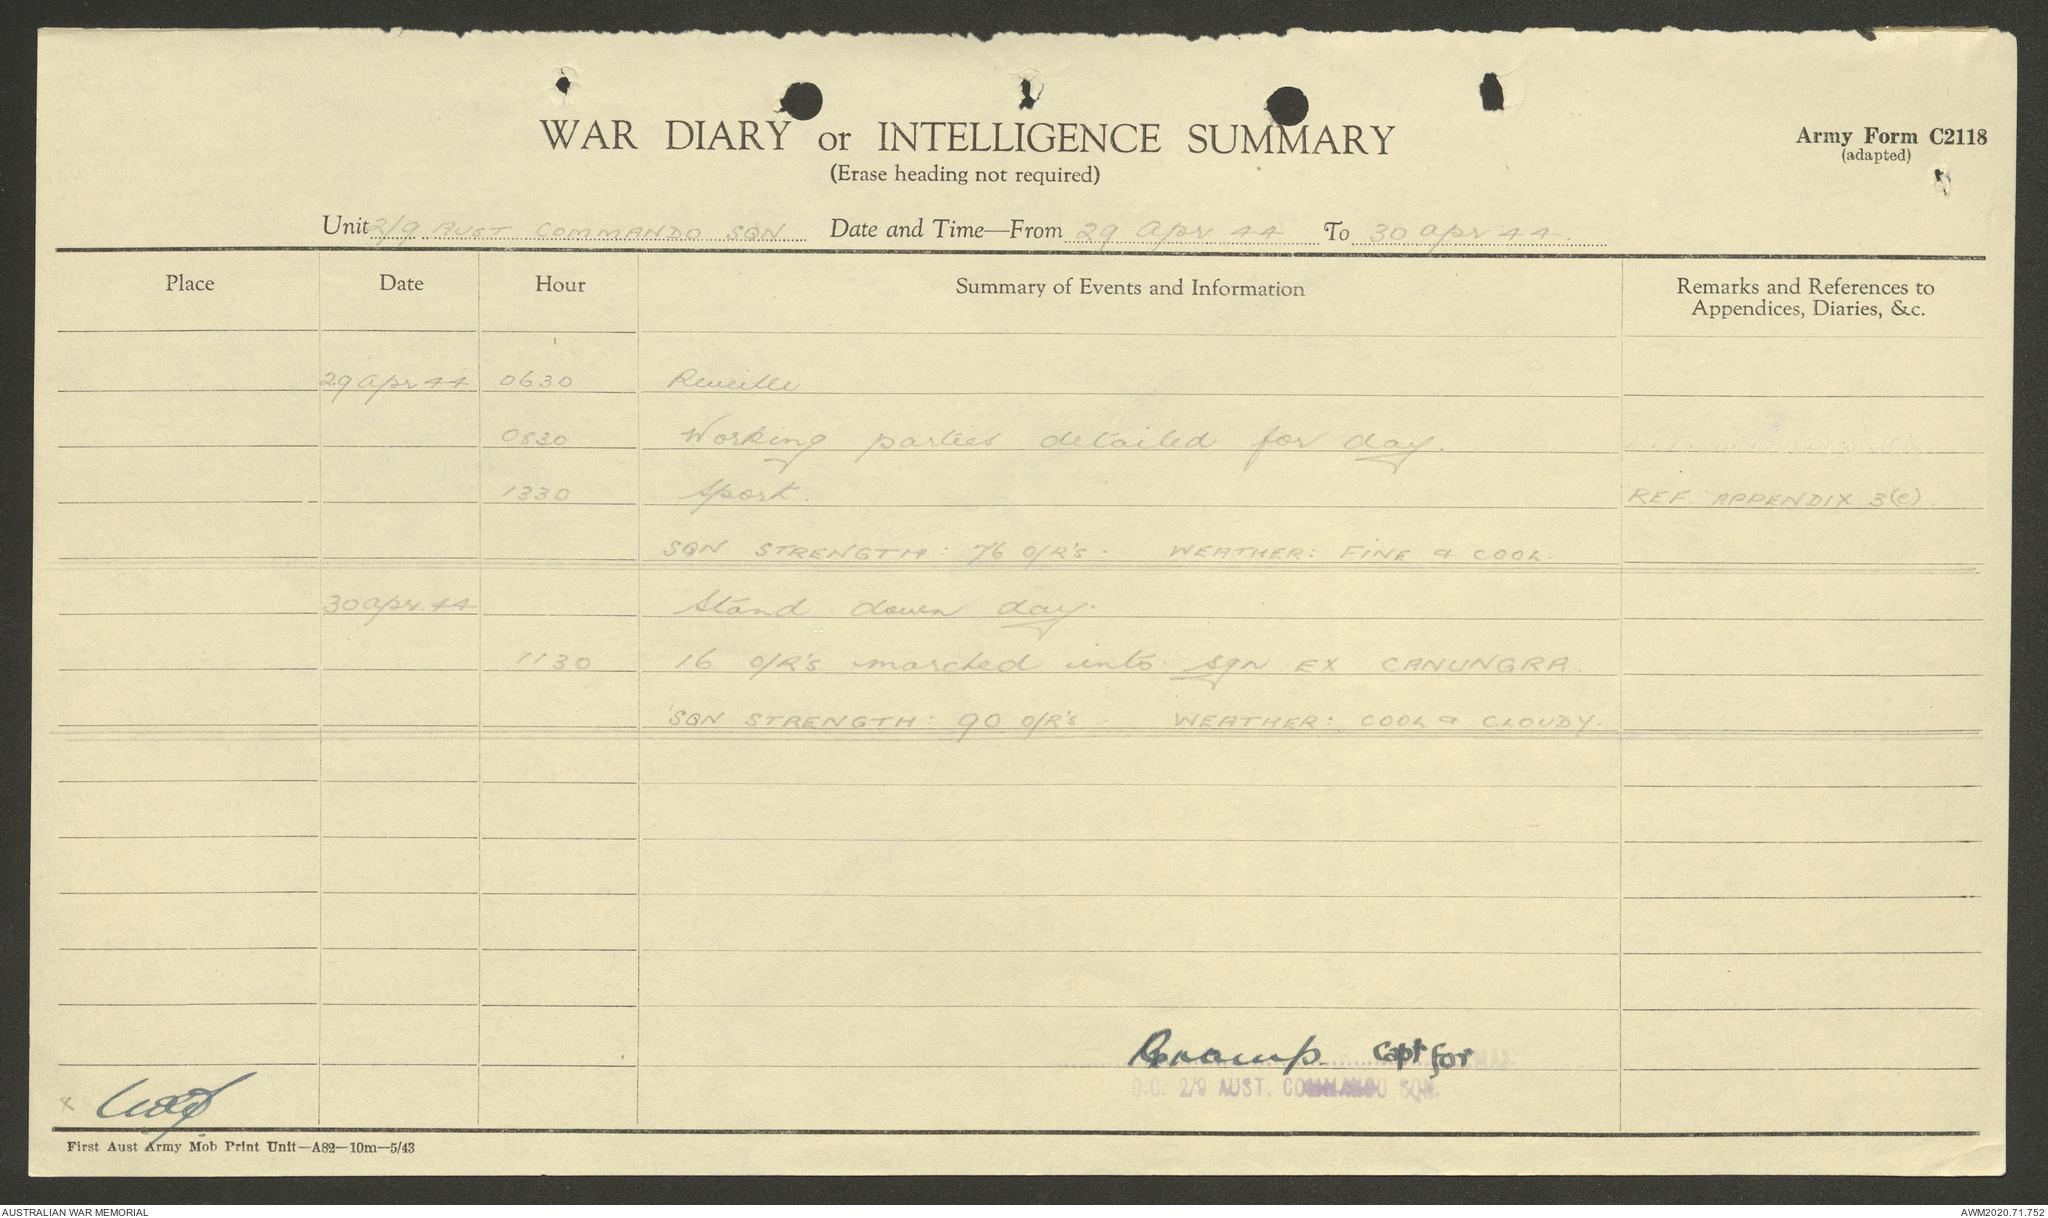 WAR DIARY or INTELLIGENCE SUMMARY
(Erase heading not required)
Army Form C2118
(adapted)
Unit 2/9 AUST COMMANDO SQN Date and Time—From 29 Apr 44 To 30 Apr 44.
Place Date Hour Summary of Events and Information Remarks and References to Appendices, Diaries, &c.
29 Apr 44 0630 Reveille
0830 Working parties detailed for day.
1330 Sport. REF APPENDIX 3(e)
SQN STRENGTH: 76 O/R's. WEATHER: FINE & COOL
30 Apr. 44 Stand down day.
1130 16 O/R's marched into Sqn EX CANUNGRA.
SQN STRENGTH: 90 O/R's. WEATHER: COOL & CLOUDY.
Capt for
O.C. 2/9 AUST. COMMANDO SQN.
x
First Aust Army Mob Print Unit—A82—10m—5/43
AUSTRALIAN WAR MEMORIAL
AWM2020.71.752